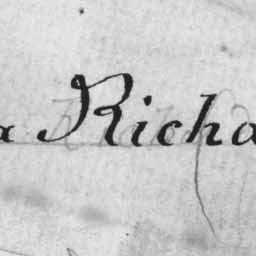 a Richa